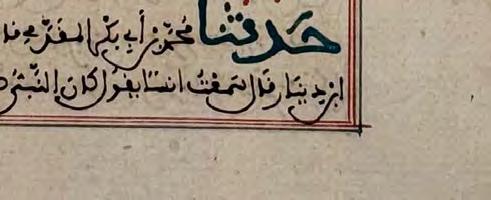 حَدَّثَنَا مُحَمَّدُ بْنُ أَبِي بَكْرٍ الْمُقَدَّمِي
ابن دينار قال سمعت انسا يقول كان النبي